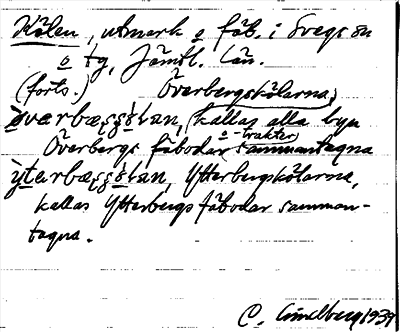 Kölen, utmark o fäb. i Svegs sn
o tg, Jämtl. län.
(forts.) Överbergskölarna,
kallas alla byn
Överbergs fäbodar o -trakter sammantagna
Ytterbergskölarna,
kallas Ytterbergs fäbodar samman-
tagna.
C. Lindberg 1939